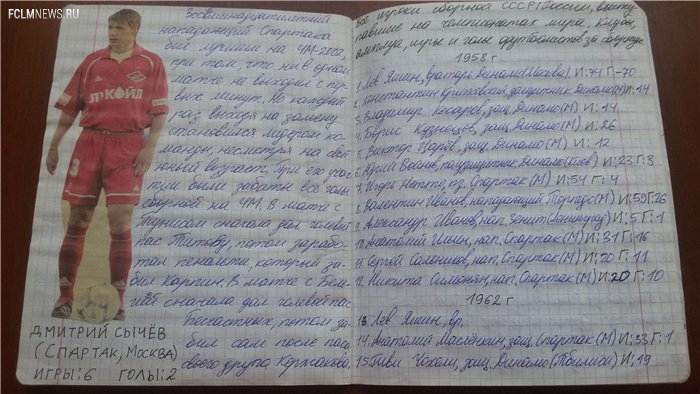 FCLMNEWS.RU
Восемнадцатилетний
нападающий Спартака
был лучшим на ЧМ-2002,
при том, что ни в одном
матче не выходил с пер-
вых минут. Но каждый
раз, выходя на замену
становился лидером ко-
манды, несмотря на свой
юный возраст. При его учас-
тии были забиты все голы
сборной на ЧМ. В матче с
Тунисом сначала дал голевой
пас Титову, потом зарабо-
тал пенальти, который за-
бил Карпин. В матче с Бель-
гией сначала дал голевой пас
Бесчастных, потом за-
бил сам после паса
своего друга Кержакова.
ЛУКОЙЛ
3
ДМИТРИЙ СЫЧЁВ
(СПАРТАК, МОСКВА)
ИГРЫ: 6 ГОЛЫ: 2
Все игроки сборной СССР/России, высту-
павшие на чемпионатах мира, клубы,
амплуа, игры и голы футболистов за сборную
1958 г
1. Лев Яшин, вратарь Динамо (Москва). И: 74 Г: -70
2. Константин Крижевский, защитник Динамо (М) И: 14
3. Владимир Кесарев, защ. Динамо (М) И: 14
4. Борис Кузнецов, защ. Динамо (М) И: 26
5. Виктор Царёв, защ. Динамо (М) И: 12
6. Юрий Войнов, полузащитник Динамо (Киев) И: 23 Г: 3
7. Игорь Нетто, пз. Спартак (М) И: 54 Г: 4
8. Валентин Иванов, нападающий Торпедо (М) И: 59 Г: 26
9. Александр Иванов, нап. Зенит (Ленинград) И: 5 Г: 1
10. Анатолий Ильин, нап. Спартак (М) И: 31 Г: 16
11. Сергей Сальников, нап. Спартак (М) И: 20 Г: 11
12. Никита Симонян, нап. Спартак (М) И: 20 Г: 10
1962 г
13 Лев Яшин, вр.
14. Анатолий Масленкин, защ. Спартак (М) И: 33 Г: 1
15. Гиви Чохели, защ. Динамо (Тбилиси) И: 19